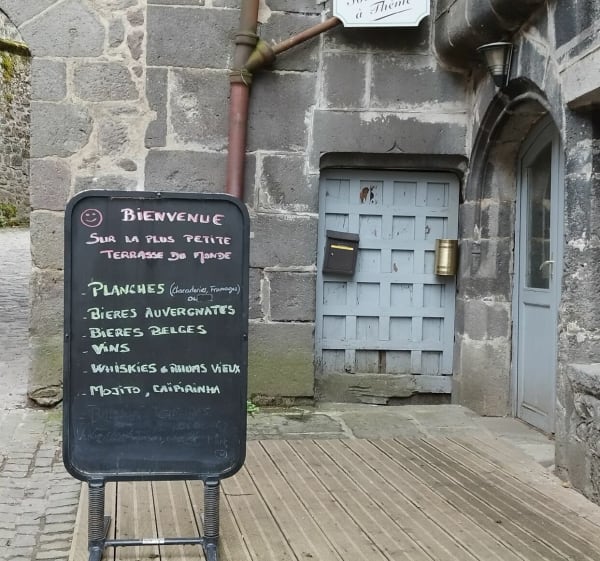 à Thème
BIENVENUE
SUR LA PLUS PETITE
TERRASSE DU MONDE
- PLANCHES (Charcuteries, Fromages)
ou
- BIERES AUVERGNATES
- BIERES BELGES
- VINS
- WHISKIES & RHUMS VIEUX
- MOJITO, CAÏPIRINHA